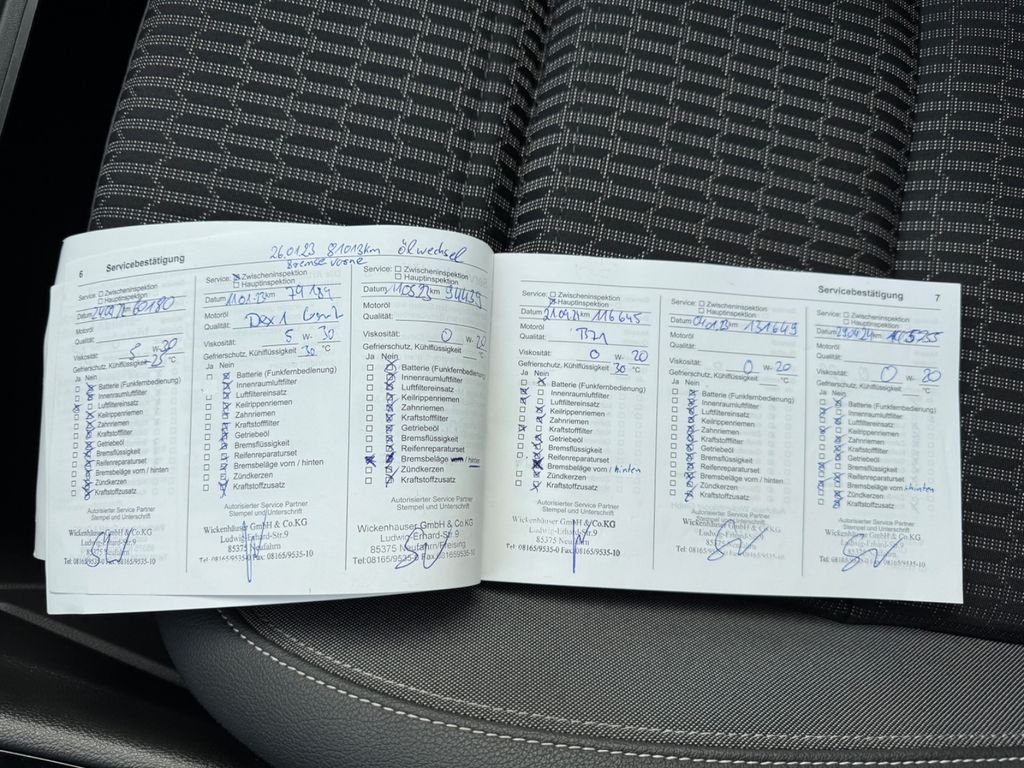 26.01.23 81013km Ölwechsel
Bremse vorne
6 Servicebestätigung
Service: Zwischeninspektion
Hauptinspektion
Datum km 60180
Motoröl
Qualität:
Viskosität: 5 W- 30
Gefrierschutz, Kühlflüssigkeit 25 °C
Ja Nein
Batterie (Funkfernbedienung)
Innenraumluftfilter
Luftfiltereinsatz
Keilrippenriemen
Zahnriemen
Kraftstofffilter
Getriebeöl
Bremsflüssigkeit
Reifenreparaturset
Bremsbeläge vorn / hinten
Zündkerzen
Kraftstoffzusatz
Autorisierter Service Partner
Stempel und Unterschrift
Wickenhäuser GmbH & Co.KG
Ludwig-Erhard-Str.9
85375 Neufahrn
Tel: 08165/9535-0 Fax 08165/9535-10
Service: Zwischeninspektion
Hauptinspektion
Datum 11.01.23 km 79184
Motoröl
Qualität: Dex1
Viskosität: 5 W- 30
Gefrierschutz, Kühlflüssigkeit 30 °C
Ja Nein
Batterie (Funkfernbedienung)
Innenraumluftfilter
Luftfiltereinsatz
Keilrippenriemen
Zahnriemen
Kraftstofffilter
Getriebeöl
Bremsflüssigkeit
Reifenreparaturset
Bremsbeläge vorn / hinten
Zündkerzen
Kraftstoffzusatz
Autorisierter Service Partner
Stempel und Unterschrift
Wickenhäuser GmbH & Co.KG
Ludwig-Erhard-Str.9
85375 Neufahrn
Tel: 08165/9535-0 Fax 08165/9535-10
Service: Zwischeninspektion
Hauptinspektion
Datum km 94439
Motoröl
Qualität:
Viskosität: 0 W- 20
Gefrierschutz, Kühlflüssigkeit
Ja Nein
Batterie (Funkfernbedienung)
Innenraumluftfilter
Luftfiltereinsatz
Keilrippenriemen
Zahnriemen
Kraftstofffilter
Getriebeöl
Bremsflüssigkeit
Reifenreparaturset
Bremsbeläge / hinten
Zündkerzen
Kraftstoffzusatz
Autorisierter Service Partner
Stempel und Unterschrift
Wickenhauser GmbH & Co KG
Ludwig-Erhard-Str. 9
85375 Neufahrn/Freising
Tel. 08165/9535-0 Fax 08165/9535-10
Servicebestätigung 7
Service: Zwischeninspektion
Hauptinspektion
Datum km 116645
Motoröl
Qualität: B71
Viskosität: 0 W- 20
Gefrierschutz, Kühlflüssigkeit 30 °C
Ja Nein
Batterie (Funkfernbedienung)
Innenraumluftfilter
Luftfiltereinsatz
Keilrippenriemen
Zahnriemen
Kraftstofffilter
Getriebeöl
Bremsflüssigkeit
Reifenreparaturset
Bremsbeläge vorn / hinten
Zündkerzen
Kraftstoffzusatz
Autorisierter Service Partner
Stempel und Unterschrift
Wickenhäuser GmbH & Co.KG
Ludwig-Erhard-Str.9
85375 Neufahrn
Tel: 08165/9535-0 Fax 08165/9535-10
Service: Zwischeninspektion
Hauptinspektion
Datum km 131649
Motoröl
Qualität:
Viskosität: 0 W- 20
Gefrierschutz, Kühlflüssigkeit °C
Ja Nein
Batterie (Funkfernbedienung)
Innenraumluftfilter
Luftfiltereinsatz
Keilrippenriemen
Zahnriemen
Kraftstofffilter
Getriebeöl
Bremsflüssigkeit
Reifenreparaturset
Bremsbeläge vorn / hinten
Zündkerzen
Kraftstoffzusatz
Autorisierter Service Partner
Stempel und Unterschrift
Service: Zwischeninspektion
Hauptinspektion
Datum km
Motoröl
Qualität:
Viskosität: 0 W- 20
Gefrierschutz, Kühlflüssigkeit °C
Ja Nein
Batterie (Funkfernbedienung)
Innenraumluftfilter
Luftfiltereinsatz
Keilrippenriemen
Zahnriemen
Kraftstofffilter
Getriebeöl
Bremsflüssigkeit
Reifenreparaturset
Bremsbeläge vorn / hinten
Zündkerzen
Kraftstoffzusatz
Autorisierter Service Partner
Stempel und Unterschrift
Wickenhäuser GmbH & Co.KG
Ludwig-Erhard-Str.9
85375 Neufahrn
Tel: 08165/9535-0 Fax 08165/9535-10